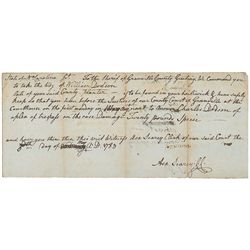 State of No Carolina To the Sherif of Granville County Greeting We Command you
to take the body of William Dodson
late of your said County Planter to be found in your bailiwick & him safely
keep so that you have him before the Justices of our County Court of Granville at the
Courthouse on the first monday in next to answer Charles Dodson of
a plea of trespass on the case Damage Twenty pounds Specie
and have you then there this writ Witness Asa Searcy Clerk of our said Court the
day of A.D. 1783
Asa Searcy CC